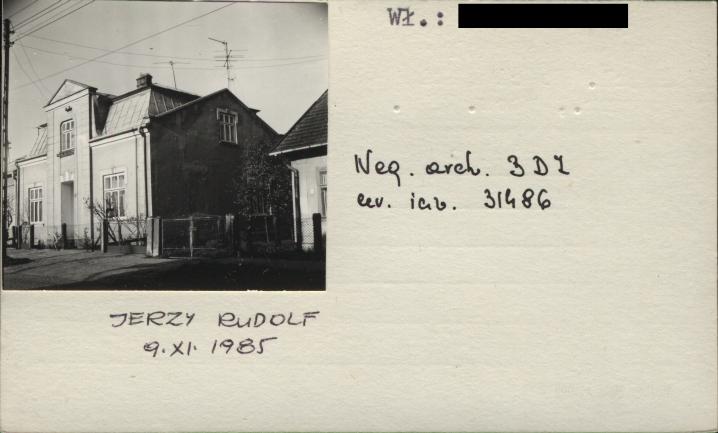 Wł.:
Neg. arch. 3DZ
nr. inw. 31486
JERZY RUDOLF
9.XI.1985